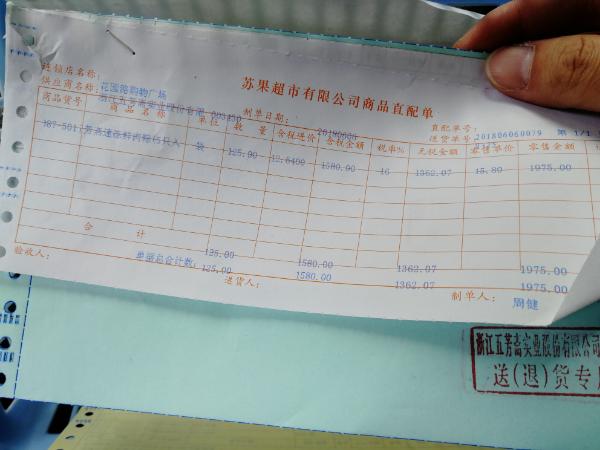 苏果超市有限公司商品直配单
连锁店名称: 花园路购物广场
供应商名称: 浙江五芳斋实业股份有限 003450 制单日期: 直配单号:
送货单号 201806060079 第 1/1
商品货号 商品名称 单位 数量 含税进价 含税金额 税率% 无税金额 零售单价 零售金额
187-501 袋 125.00 12.6400 1580.00 16 1362.07 15.80 1975.00
合计 125.00 1580.00 1362.07 1975.00
单据总合计数: 125.00 1580.00 1362.07 1975.00
验收人: 送货人: 制单人: 周健
浙江五芳斋实业股份有限公司
送(退)货专